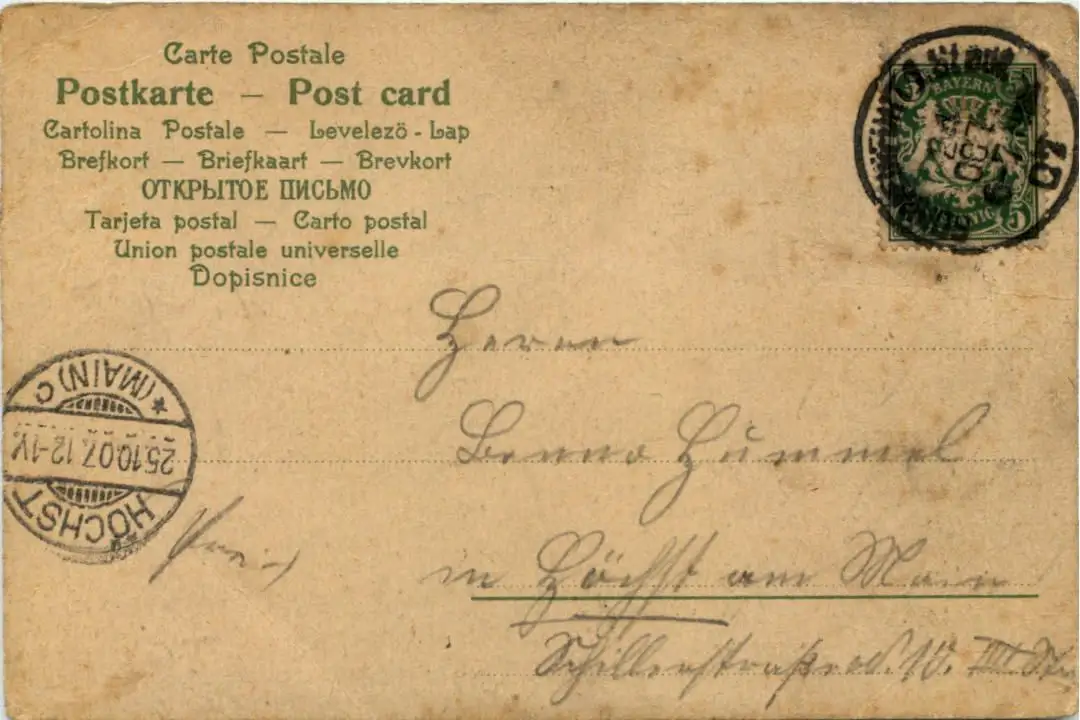 Carte Postale
Postkarte — Post card
Cartolina Postale — Levelező - Lap
Brefkort — Briefkaart — Brevkort
ОТКРЫТОЕ ПИСЬМО
Tarjeta postal — Carto postal
Union postale universelle
Dopisnice
BAYERN
5 5
5
Herrn
Bruno Hummel
in Höchst am Main
Schillerstraße
III
HÖCHST
25.10.07.12-1V.
*(MAIN) c